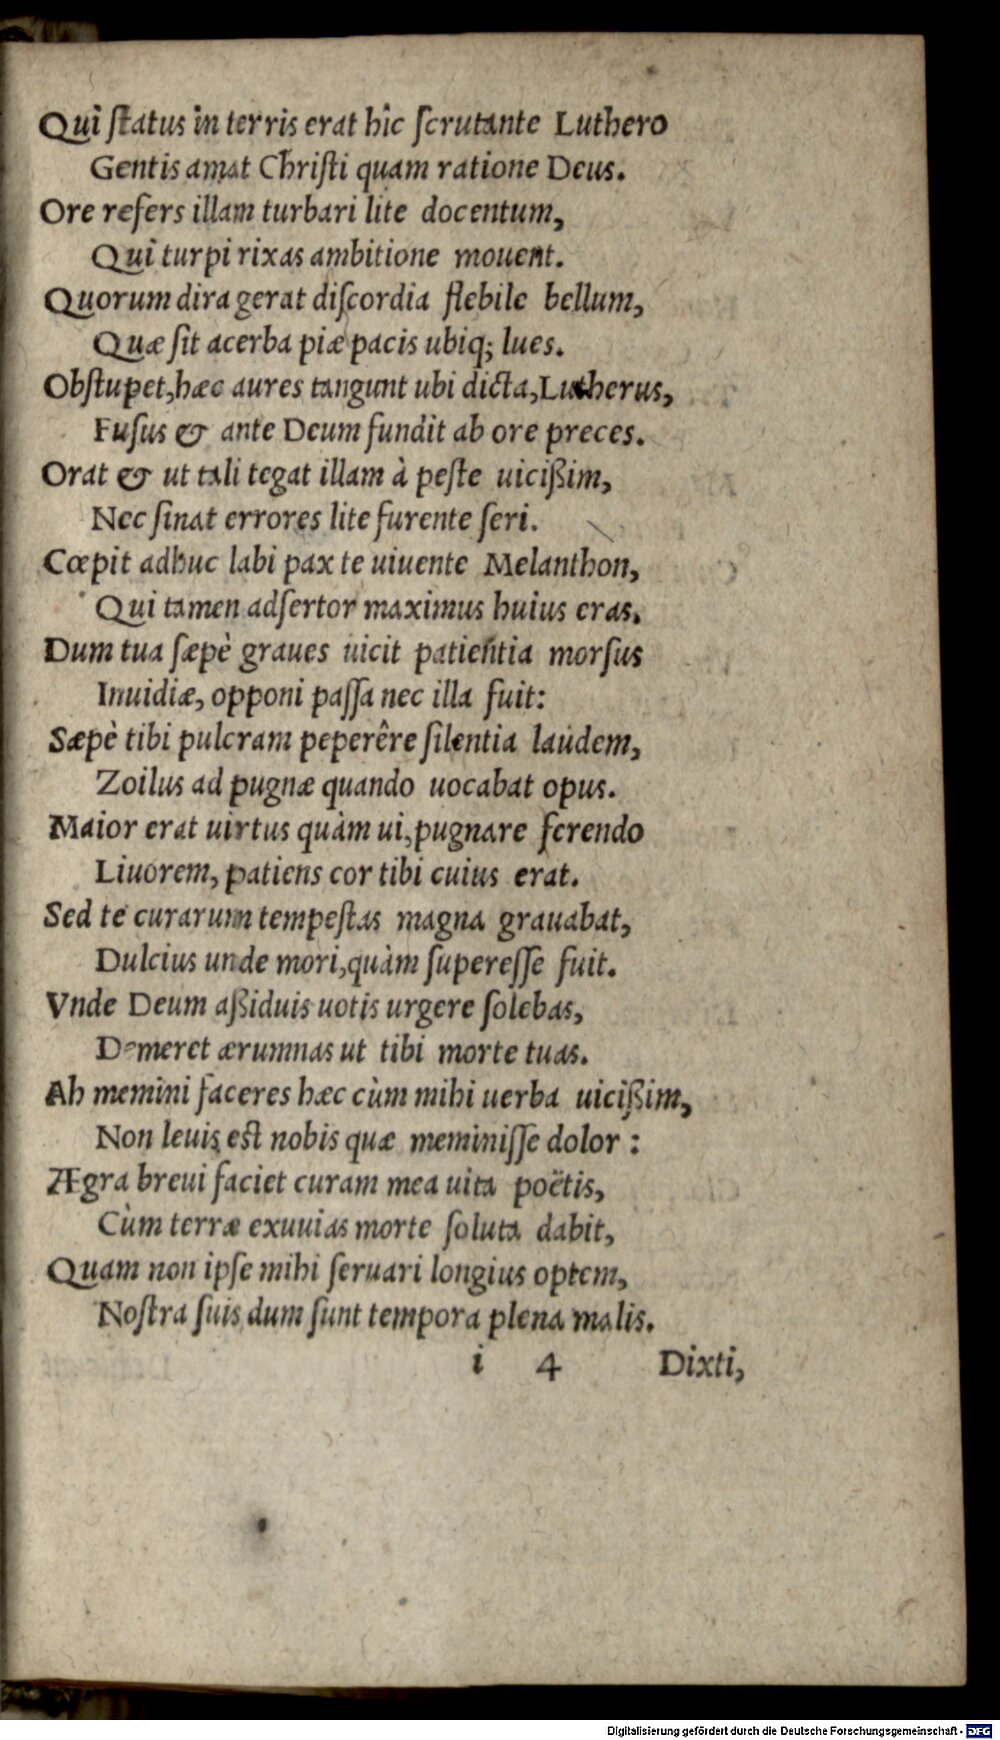 Qui ſtatus in terris erat hîc ſcrutante Luthero
Gentis amat Chriſti quam ratione Deus.
Ore refers illam turbari lite docentum,
Qui turpi rixas ambitione mouent.
Quorum dira gerat diſcordia flebile bellum,
Quæ ſit acerba piæ pacis ubiq; lues.
Obſtupet, hæc aures tangunt ubi dicta, Lutherus,
Fuſus & ante Deum fundit ab ore preces.
Orat & ut tali tegat illam à peſte uicißim,
Nec ſinat errores lite furente ſeri.
Cœpit adhuc labi pax te uiuente Melanthon,
Qui tamen adſertor maximus huius eras.
Dum tua ſæpè graues uicit patientia morſus
Inuidiæ, opponi paſſa nec illa fuit:
Sæpè tibi pulcram peperêre ſilentia laudem,
Zoilus ad pugnæ quando uocabat opus.
Maior erat uirtus quàm ui, pugnare ferendo
Liuorem, patiens cor tibi cuius erat.
Sed te curarum tempeſtas magna grauabat,
Dulcius unde mori, quàm ſupereſſe fuit.
Vnde Deum aßiduis uotis urgere ſolebas,
Demeret ærumnas ut tibi morte tuas.
Ah memini faceres hæc cùm mihi uerba uicißim,
Non leuis eſt nobis quæ meminiſſe dolor:
Ægra breui faciet curam mea uita poëtis,
Cùm terræ exuuias morte ſoluta dabit,
Quam non ipſe mihi ſeruari longius optem,
Noſtra ſuis dum ſunt tempora plena malis.
i 4 Dixti,
Digitalisierung gefördert durch die Deutsche Forschungsgemeinschaft - DFG